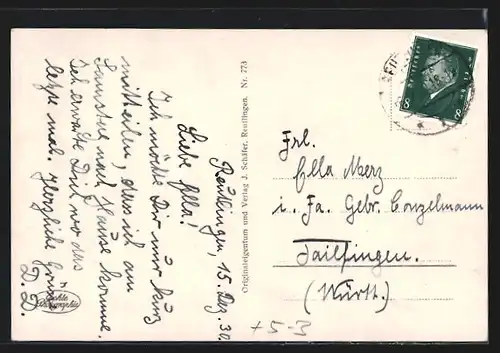 Reutlingen, 15. Dez. 30.
Liebe Ella!
Ich möchte Dir nur kurz
mitteilen, dass ich am
Samstag nach Hause komme.
Ich erwarte Dich nur das
letzte mal. Herzliche Grüsse
D. D.
Originaleigentum und Verlag J. Schäfer, Reutlingen. Nr. 773
Frl.
Ella Merz
i. Fa. Gebr. Conzelmann
Tailfingen.
(Württ.)
8 8
+ 5-3